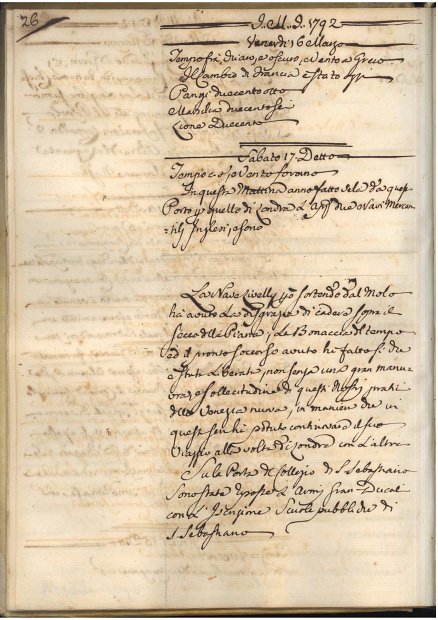 26
J.M.J. 1792
Venerdi 16 Marzo
Tempo frà, e oscuro, e Vento a Greco
Il Cambio di Francia è stato
Parigi duecento otto
Marsilia duecento sei
Lione Duecento
Sabato 17 Detto
Tempo e Vento forano
In questa Mattina anno fatto vela da questo
Porto p quello di Londra due Navi Mercan
-tilj Inglesi, e sono
La Nave Lively sortendo dal Molo
ha avuto la disgrazia di cadere sopra il
Secco della Piana, La Bonaccia di tempo
ed il pronto socorso avuto hà fatto si che
è stata Liberata, non senza una gran manu-
ora, e sollecitudine di questi Nostrj prati
della Venezia nuova, in maniera che in
questa sera hà potuto continuare il suo
Viaggio alla volta di Londra con l'altra
Su la Porta del Collegio di S. Sebastiano
Sono state esposte L'Armj Gran Ducal
con L'Iscrizione Scuole pubbliche di
S. Sebastiano